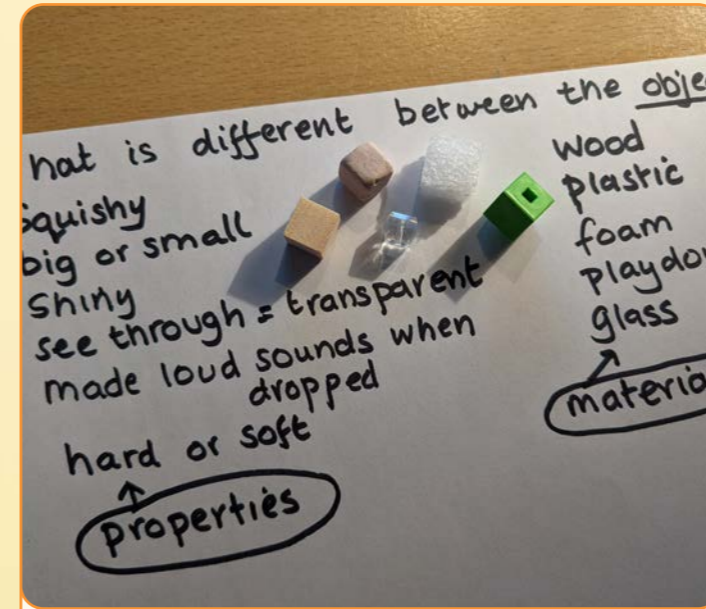 hat is different between the obje
squishy
big or small
shiny
see through = transparent
made loud sounds when
dropped
hard or soft
properties
wood
plastic
foam
playdo
glass
materia